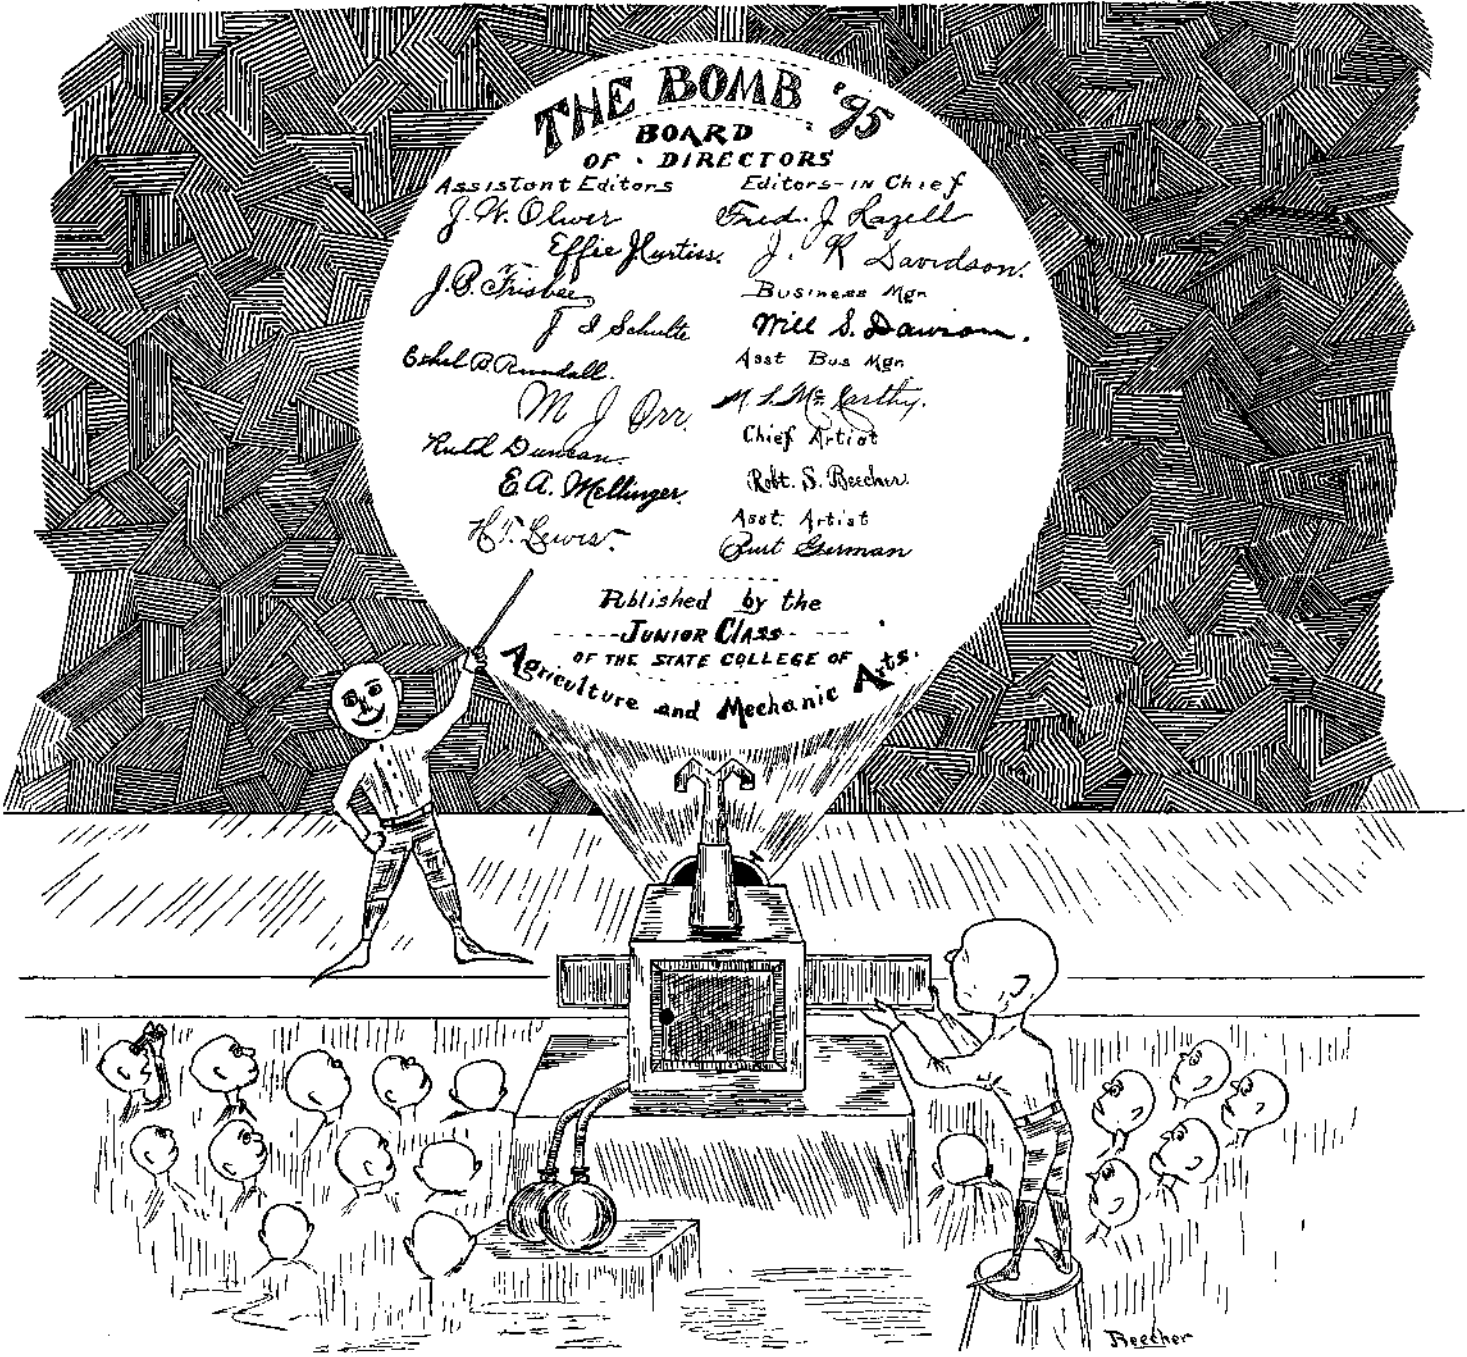 THE BOMB '95
BOARD
OF · DIRECTORS
Assistant Editors
J. W. Oliver
Effie J Curtiss.
J. P. Frisbee
J I Schulte
Ethel B. Rundall.
M J Orr.
Ruth Duncan.
E. A. Mellinger.
H. T. Lewis.
Editors-in Chief
Fred. J Lazell
J. K Davidson.
Business Mgn
Will S. Dawson.
Asst Bus Mgn
M. L. McCarthy.
Chief Artist
Robt. S. Beecher.
Asst. Artist
Curt German
Publised by the
JUNIOR CLASS
OF THE STATE COLLEGE OF
Agriculture and Mechanic Arts.
Beecher